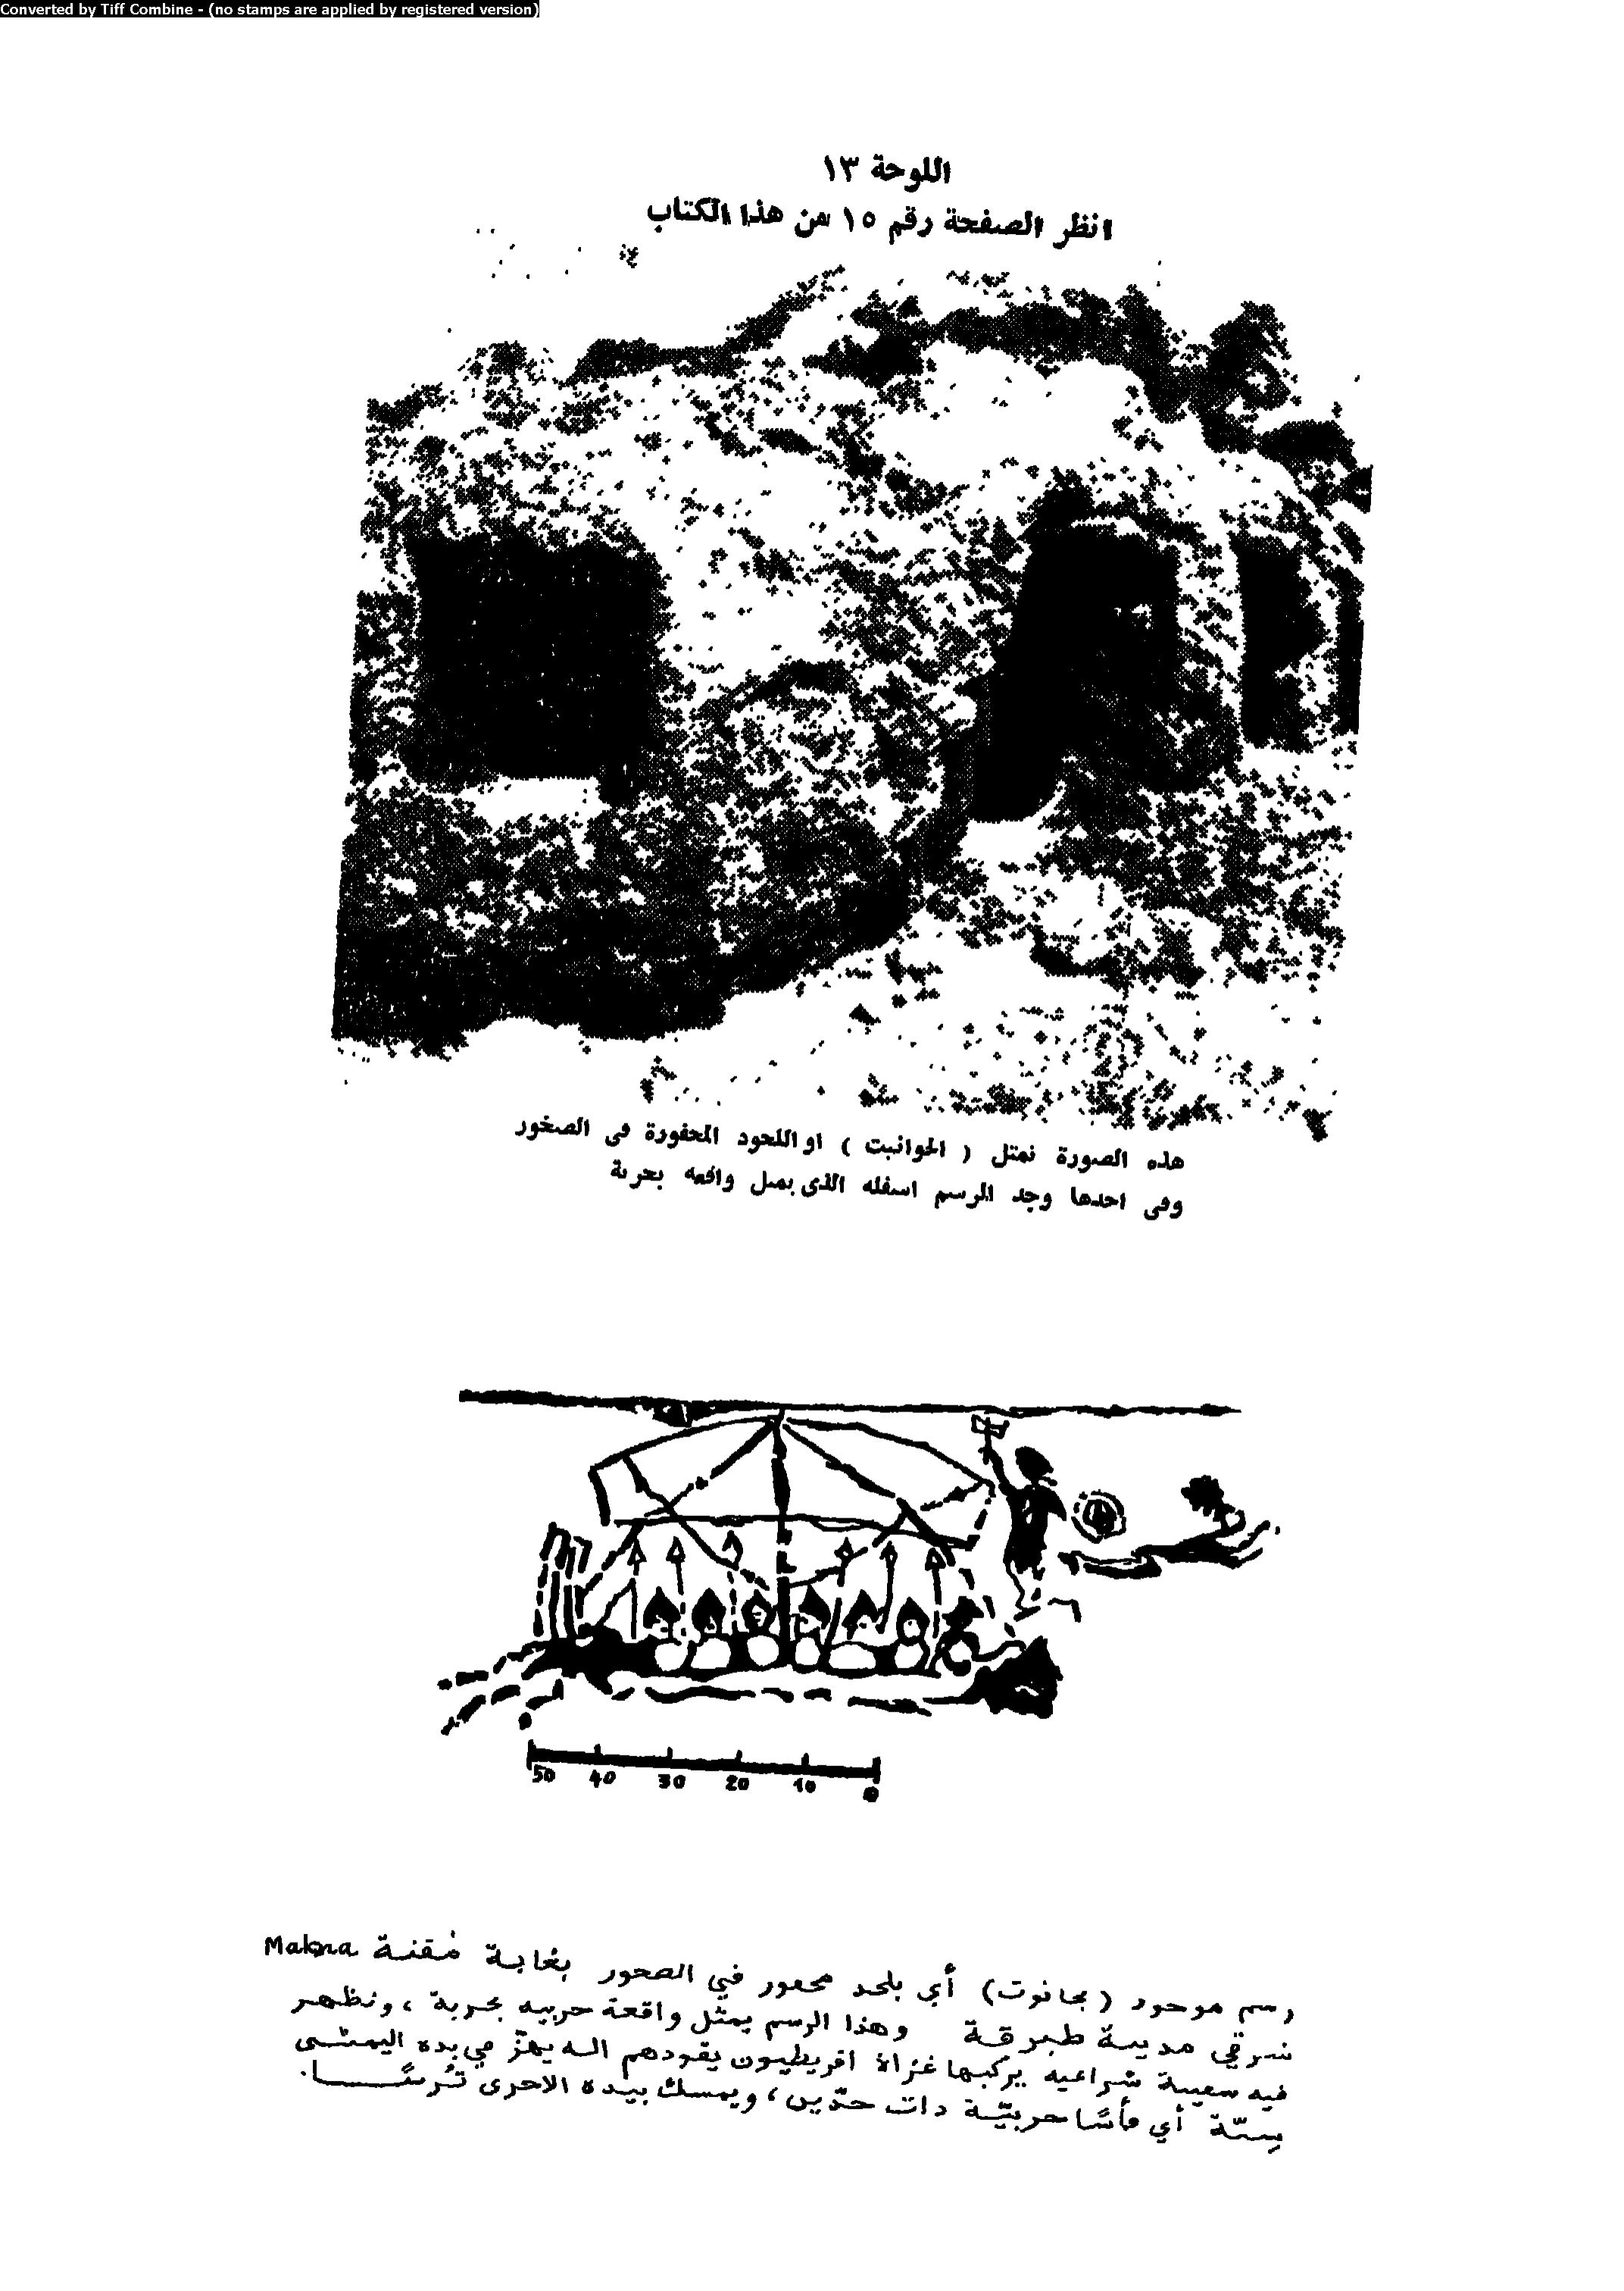 Converted by Tiff Combine - (no stamps are applied by registered version)
اللوحة ١٣
انظر الصفحة رقم ١٥ من هذا الكتاب
هذه الصورة تمثل ( الحوانيت ) او اللحود المحفورة فى الصخور
وفى احدها وجد الرسم اسفله الذى يمثل واقعه بحرية
50 40 30 20 10 0
رسم موجود (بحانوت) أي بلحد محفور في الصخور بغابة مُقنة Makna
شرقي مدينة طبرقة وهذا الرسم يمثل واقعة حربيه بحرية ، ونظهر
فيه سفينة شراعيه يركبها غزاة اقريطيون يقودهم اله يهزّ في يده اليمنى
بِستّة أي فأسًا حربيّة ذات حدّين ، ويمسك بيده الاخرى تُرسًا .